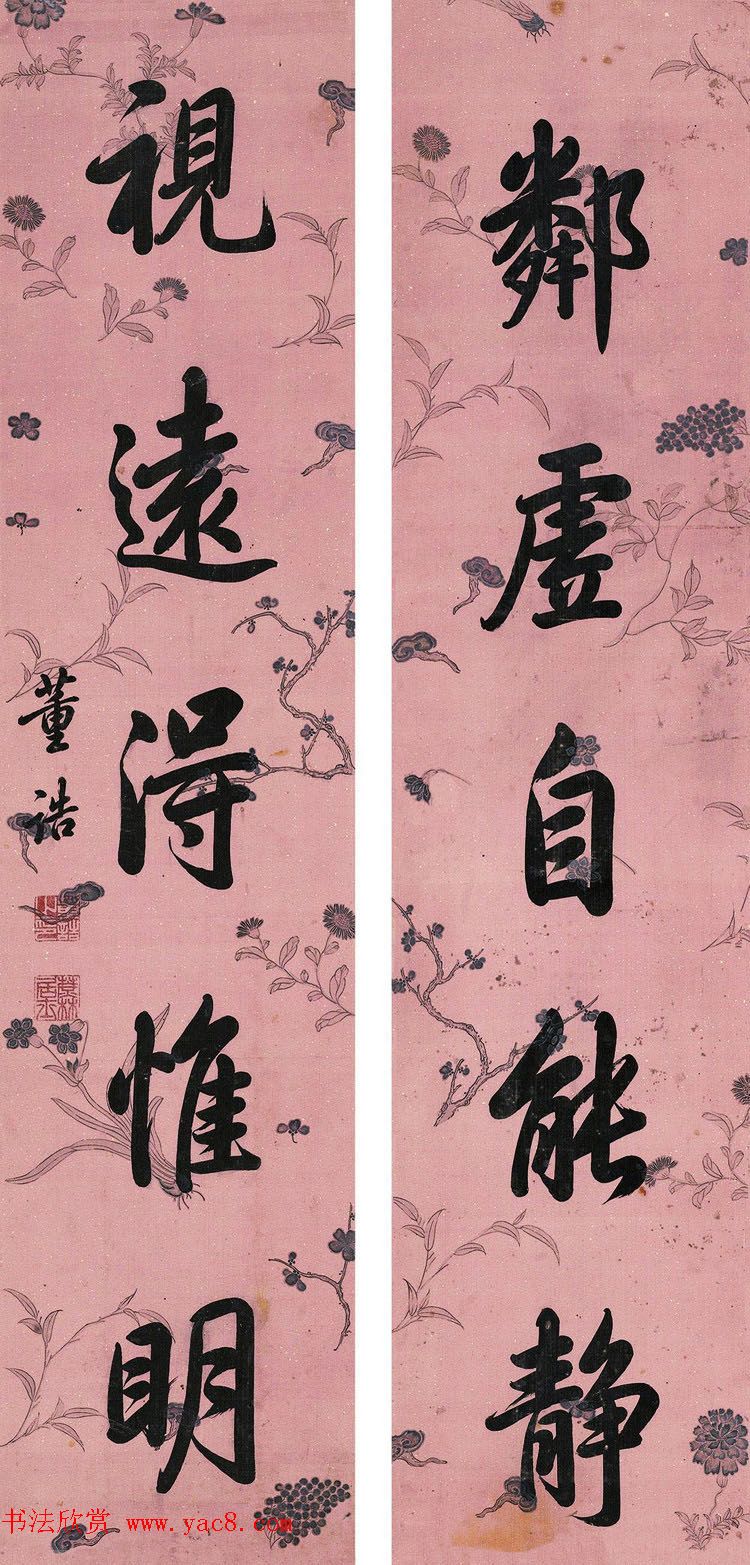 鄰虛自能靜
視遠得惟明
董誥
书法欣赏 www.yac8.com